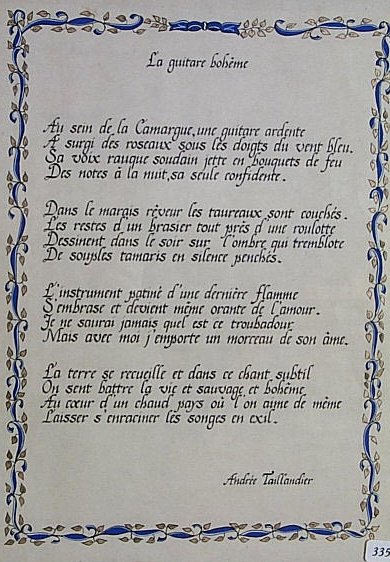 La guitare bohême
Au sein de la Camargue, une guitare ardente
A surgi des roseaux sous les doigts du vent bleu.
Sa voix rauque soudain jette en bouquets de feu
Des notes à la nuit, sa seule confidente.
Dans le marais rêveur les taureaux sont couchés.
Les restes d'un brasier tout près d'une roulotte
Dessinent dans le soir sur l'ombre qui tremblote
De souples tamaris en silence penchés.
L'instrument patiné d'une dernière flamme
S'embrase et devient même orante de l'amour.
Je ne saurai jamais quel est ce troubadour
Mais avec moi j'emporte un morceau de son âme.
La terre se recueille et dans ce chant subtil
On sent battre la vie et sauvage et bohême
Au cœur d'un chaud pays où l'on aime de même
Laisser s'enraciner les songes en exil.
Andrée Taillandier
335